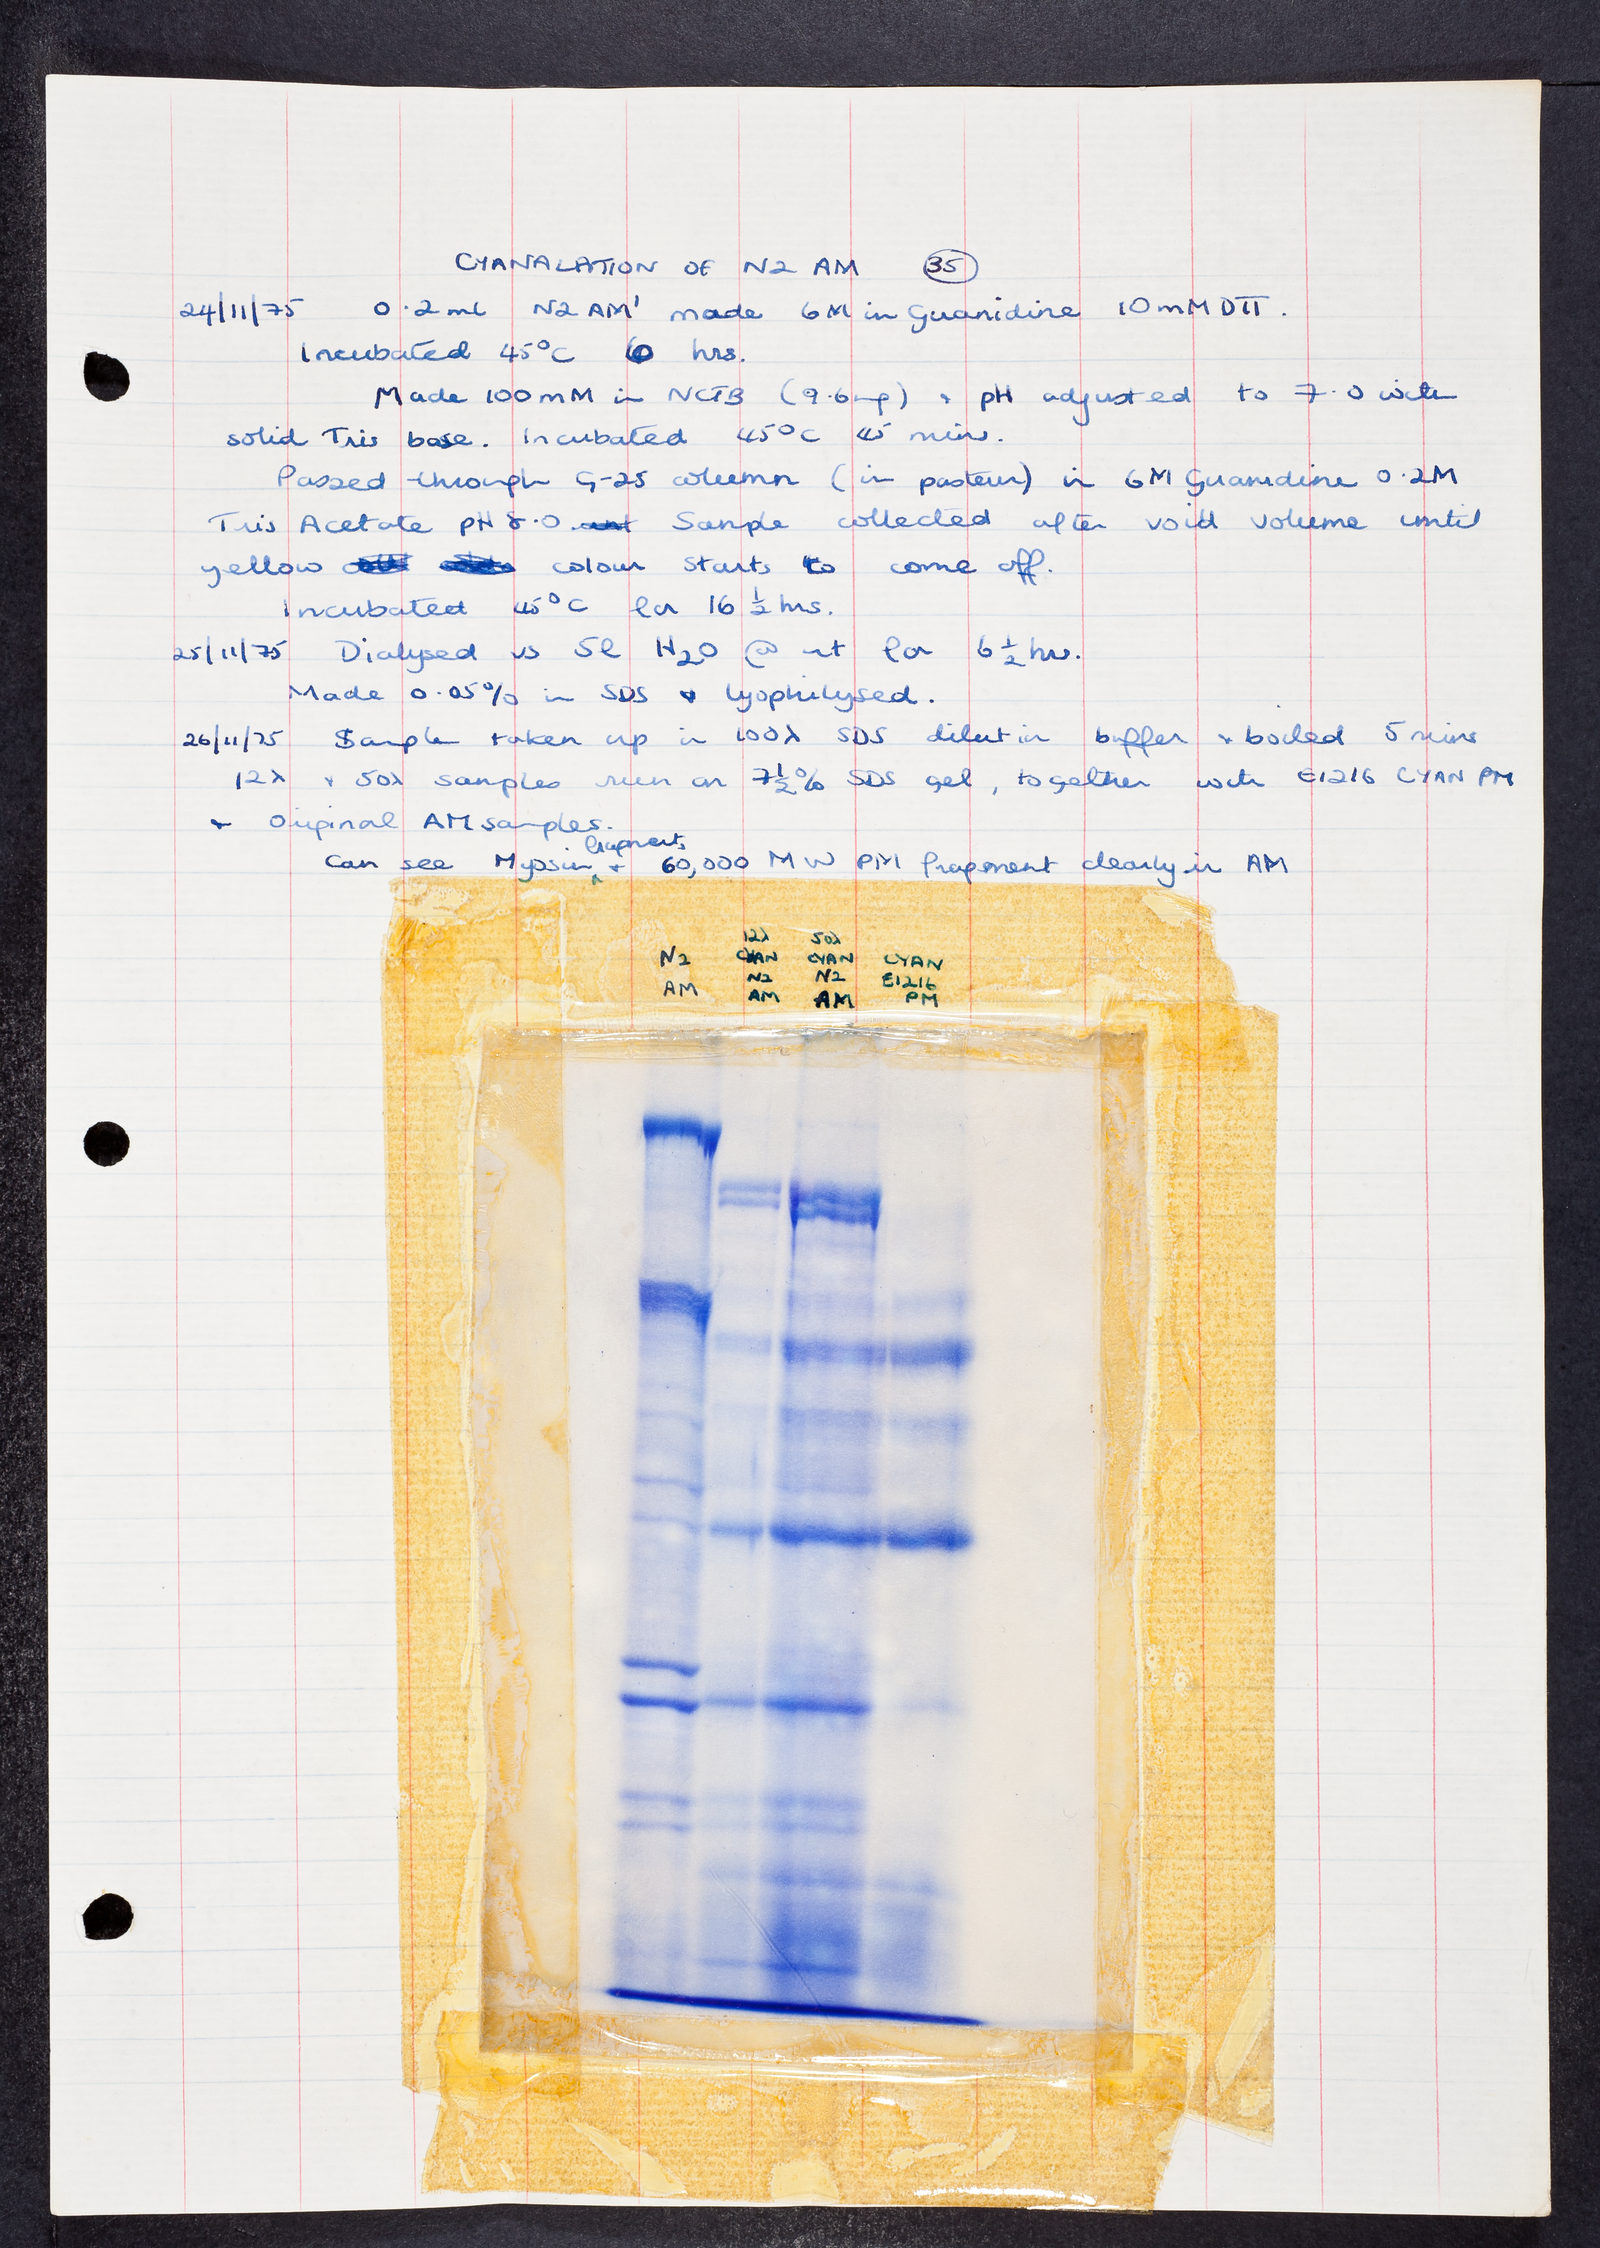 CYANALATION OF N2 AM 35
24/11/75 0.2ml N2 AM' made 6M in Guanidine 10mM DTT.
Incubated 45°C 6 hrs.
Made 100mM in NCTB (9.6mg) + pH adjusted to 7.0 with
solid Tris base. Incubated 45°C 45 mins.
Passed through G-25 column (in pasteur) in 6M Guanidine 0.2M
Tris Acetate pH 8.0 Sample collected after void volume until
yellow colour starts to come off.
Incubated 45°C for 16 ½ hrs.
25/11/75 Dialysed vs 5l H2O @ rt for 6 ½ hrs.
Made 0.05% in SDS + lyophilysed.
26/11/75 Sample taken up in 100λ SDS dilutin buffer + boiled 5 mins
12λ + 50λ samples run on 7½% SDS gel, together with E1216 CYAN PM
+ original AM samples.
Can see Myosin fragments + 60,000 MW PM fragment clearly in AM
N2 AM
12λ CYAN N2 AM
50λ CYAN N2 AM
CYAN E1216 PM